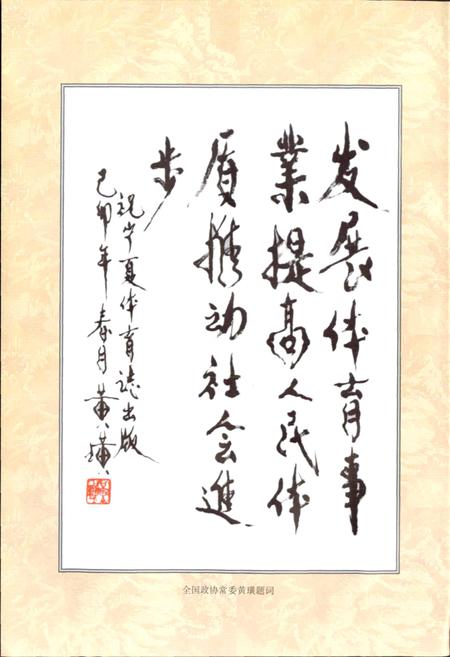 发展体育事
業提高人民体
质推动社会進
步
祝宁夏体育誌出版
己卯年春月黄璜
全国政协常委黄璜题词